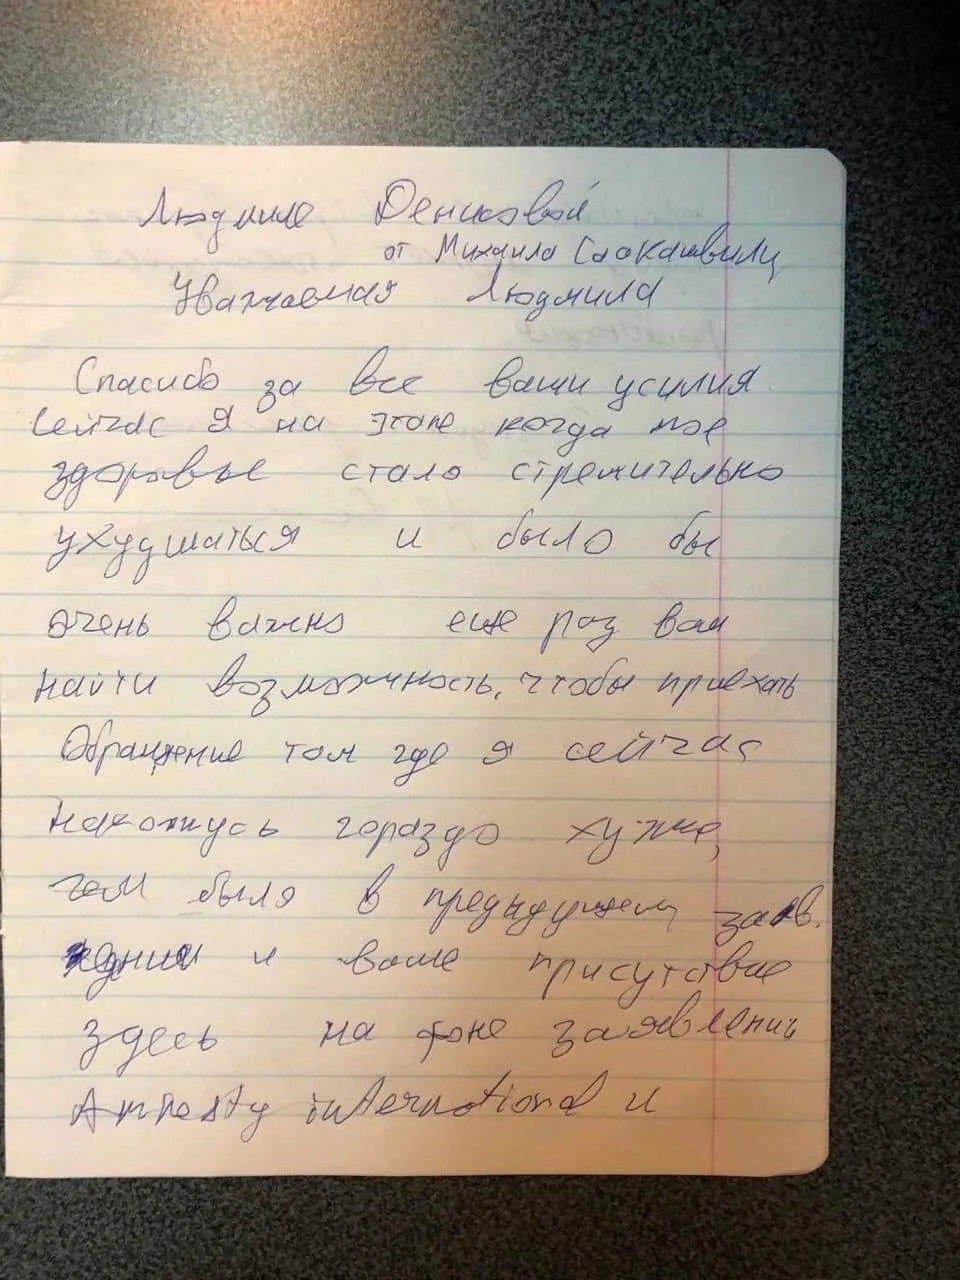 Людмиле Денисовой
от Михаила Саакашвили
Уважаемая Людмила
Спасибо за все ваши усилия
Сейчас я на этапе когда мое
здоровье стало стремительно
ухудшаться и было бы
очень важно еще раз вам
найти возможность, чтобы приехать
Обращение там где я сейчас
нахожусь гораздо хуже,
чем было в предыдущем
и ваше присутствие
здесь на фоне заявлении
Amnesty international и